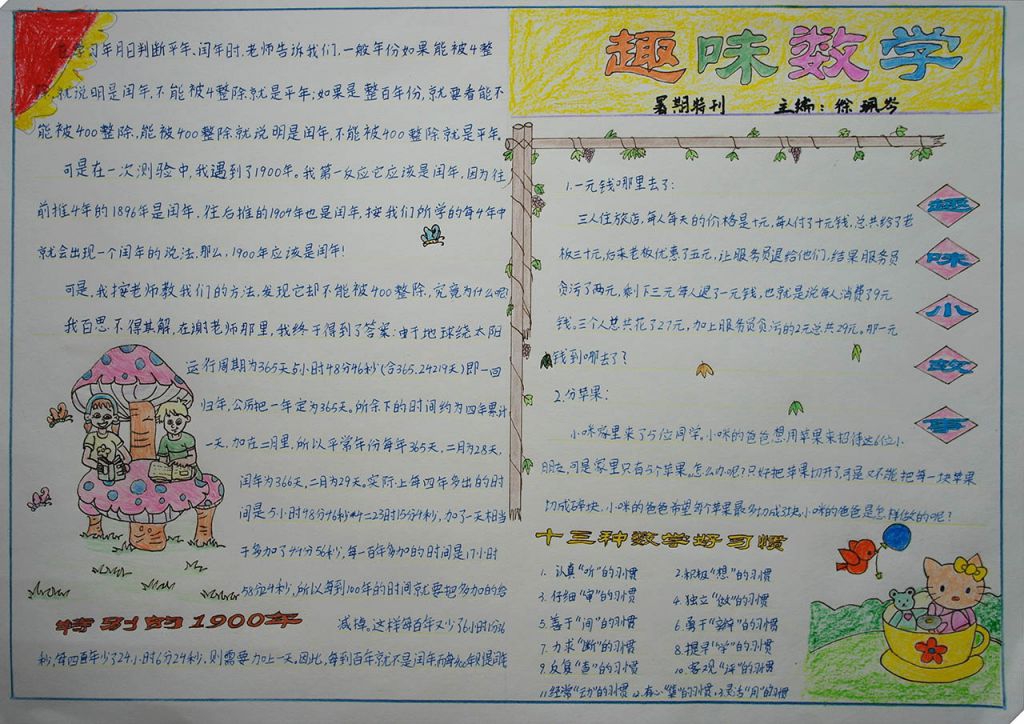 学习年月日判断平年、闰年时,老师告诉我们,一般年份如果能被4整
除,就说明是闰年,不能被4整除就是平年;如果是整百年份,就要看能不
能被400整除,能被400整除就说明是闰年,不能被400整除就是平年。
可是在一次测验中,我遇到了1900年。我第一反应它应该是闰年,因为往
前推4年的1896年是闰年,往后推的1904年也是闰年,按我们所学的每4年中
就会出现一个闰年的说法,那么,1900年应该是闰年!
可是,我按老师教我们的方法,发现它却不能被400整除,究竟为什么呢?
我百思不得其解,在谢老师那里,我终于得到了答案:由于地球绕太阳
运行周期为365天5小时48分46秒(合365.24219天)即一回
归年,公历把一年定为365天。所余下的时间约为四年累计
一天,加在二月里,所以平常年份每年365天,二月为28天,
闰年为366天,二月为29天。实际上每四年多出的时
间是5小时48分46秒*4=23时15分4秒,加了一天相当
于多加了44分56秒,每一百年多加的时间是17小时
58分24秒,所以每到100年的时间就要把多加的给
减掉。这样每百年又少了6小时1分36
秒,每四百年少了24小时6分24秒,则需要加上一天。因此,每到百年就不是闰年而每400年
特别的1900年
趣味数学
暑期特刊 主编:徐珮岑
趣味小故事
1.一元钱哪里去了:
三人住旅店,每人每天的价格是十元,每人付了十元钱,总共给了老
板三十元,后来老板优惠了五元,让服务员退给他们,结果服务员
贪污了两元,剩下三元每人退了一元钱,也就是说每人消费了9元
钱。三个人总共花了27元,加上服务员贪污的2元总共29元。那一元
钱到哪去了?
2.分苹果:
小咪家里来了5位同学。小咪的爸爸想用苹果来招待这6位小
朋友,可是家里只有5个苹果。怎么办呢?只好把苹果切开了,可是又不能把每一块苹果
切成碎块,小咪的爸爸希望每个苹果最多切成3块。小咪的爸爸是怎样做的呢?
十三种数学好习惯
1. 认真“听”的习惯 2.积极“想”的习惯
3. 仔细“审”的习惯 4. 独立“做”的习惯
5.善于“问”的习惯 6.勇于“辩”的习惯
7.力求“断”的习惯 8.提早“学”的习惯
9.反复“查”的习惯 10.客观“评”的习惯
11.经常“动”的习惯 12.有心“集”的习惯 13.灵活“用”的习惯